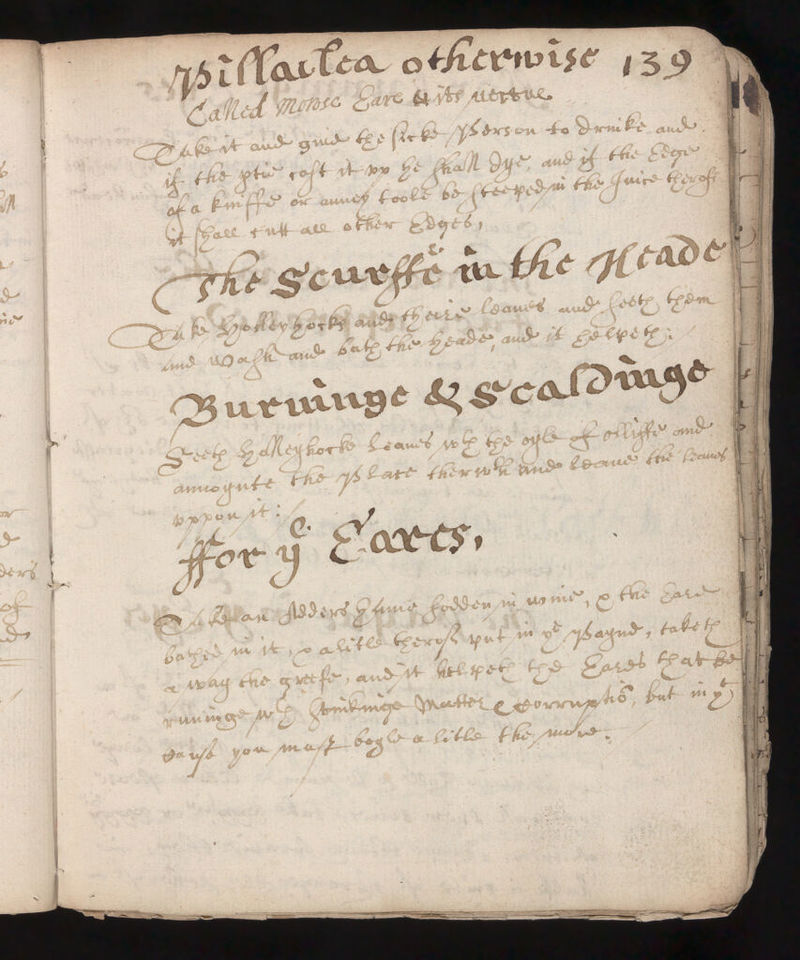 Pillaclea otherwise 139
Called Mowse Eare & its vertue
Take it and give the sicke Person to drinke and
if the ptie cast it vp he shall dye, and if the Edge
of a kniffe or anney toole be steeped in the Juice therof
it shall cutt all other Edges,
The Scurffe in the Heade
Take Holleyhocks and theire leaves and seeth them
and wash and bath the heade, and it helpeth:
Burninge & Scaldinge
Seeth Holleyhocke Leaves wth the oyle of olliffe and
annoynte the Place therwth and leave the leaves
vppon it:
ffor ye Eares,
Take an Adders skinne sodden in wine, & the Eare
bathed in it, & a litle therof put in ye Payne, taketh
a way the greefe, and it helpeth the Eares that be
runinge wth stinkinge Matter & Corruptio, but in yt
cause you must boyle a litle the more:
ders
of